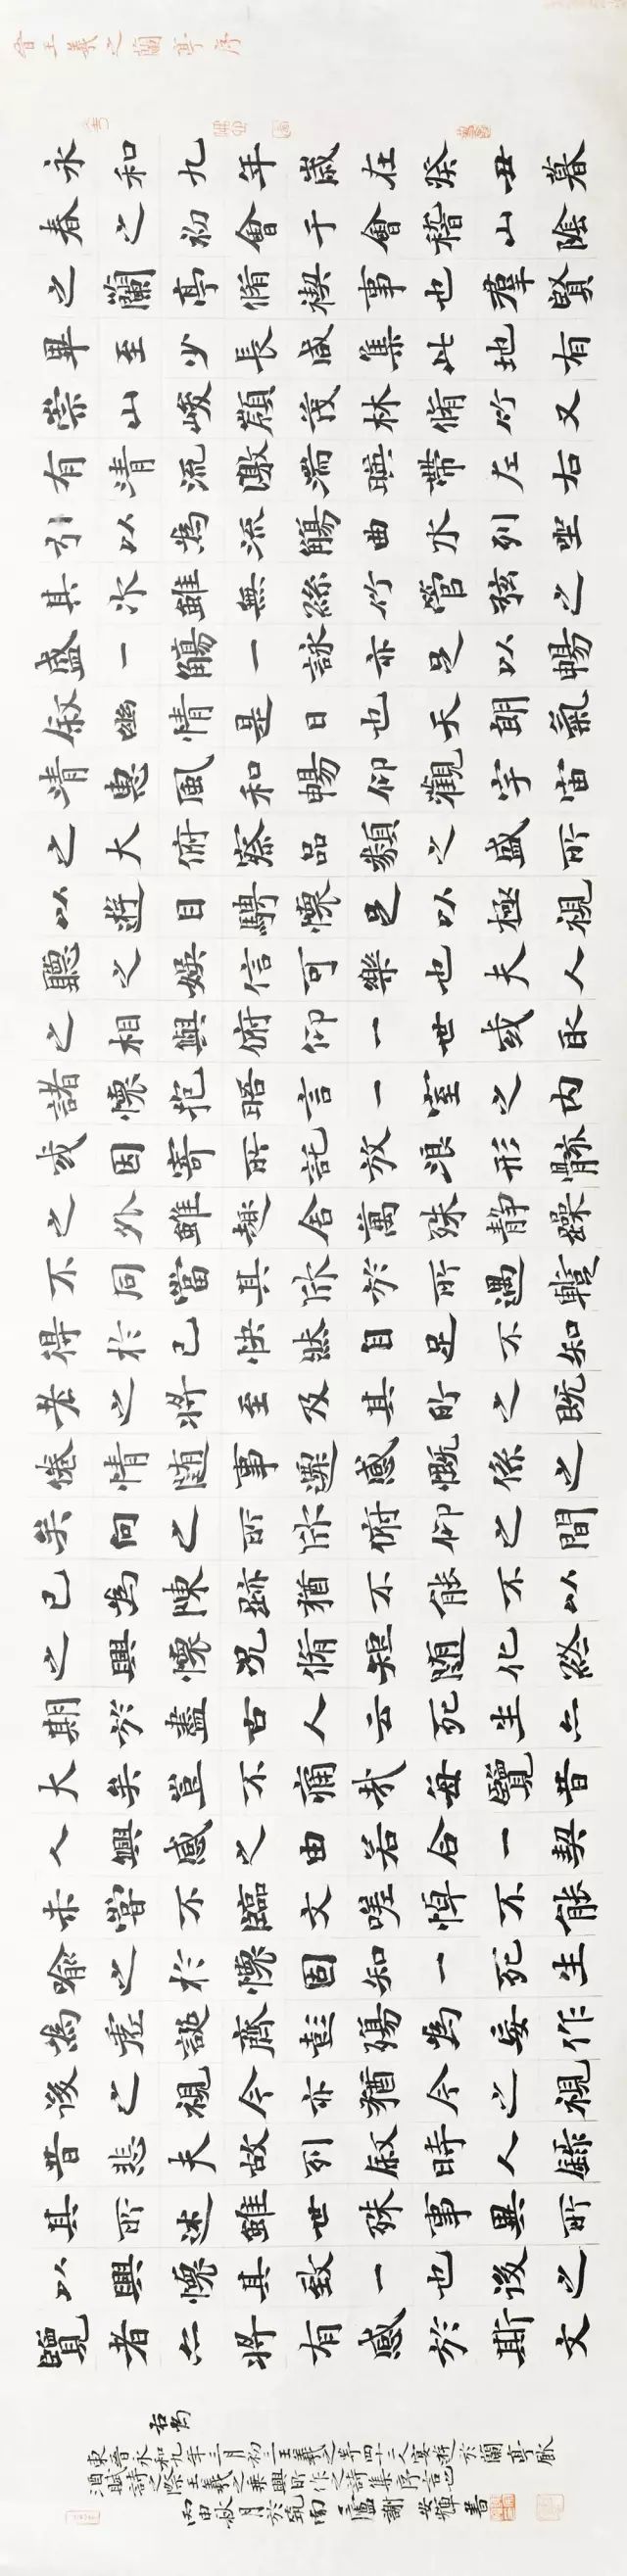 會王羲之蘭亭序
永和九年歲在癸丑暮
春之初會于會稽山陰
之蘭亭脩禊事也羣賢
畢至少長咸集此地有
崇山峻嶺茂林脩竹又
有清流激湍暎帶左右
引以為流觴曲水列坐
其次雖無絲竹管弦之
盛一觴一詠亦足以暢
叙幽情是日也天朗氣
清惠風和暢仰觀宇宙
之大俯察品類之盛所
以遊目騁懷足以極視
聽之娛信可樂也夫人
之相與俯仰一世或取
諸懷抱晤言一室之內
或因寄所託放浪形骸
之外雖趣舍萬殊静躁
不同當其欣於所遇
得於已快然自足不知
老之將至及其所之既
倦情随事遷感慨係之
矣向之所欣俯仰之間
已為陳跡猶不能不以
之興懷況脩短随化終
期於盡古人云死生亦
大矣豈不痛哉每覽昔
人興感之由若合一契
未嘗不臨文嗟悼不能
喻之於懷固知一死生
為虛誕齊彭殤為妄作
後之視今亦猶今之視
昔悲夫故列叙時人錄
其所述雖世殊事異所
以興懷其致一也後之
覽者亦將有感於斯文
右為
東晉永和九年三月初三王羲之等四十二人宴遊於蘭亭
酒賦詩之際王羲之乘興所作之詩集序言也
丙申秋月於 南 廬謝安輝書